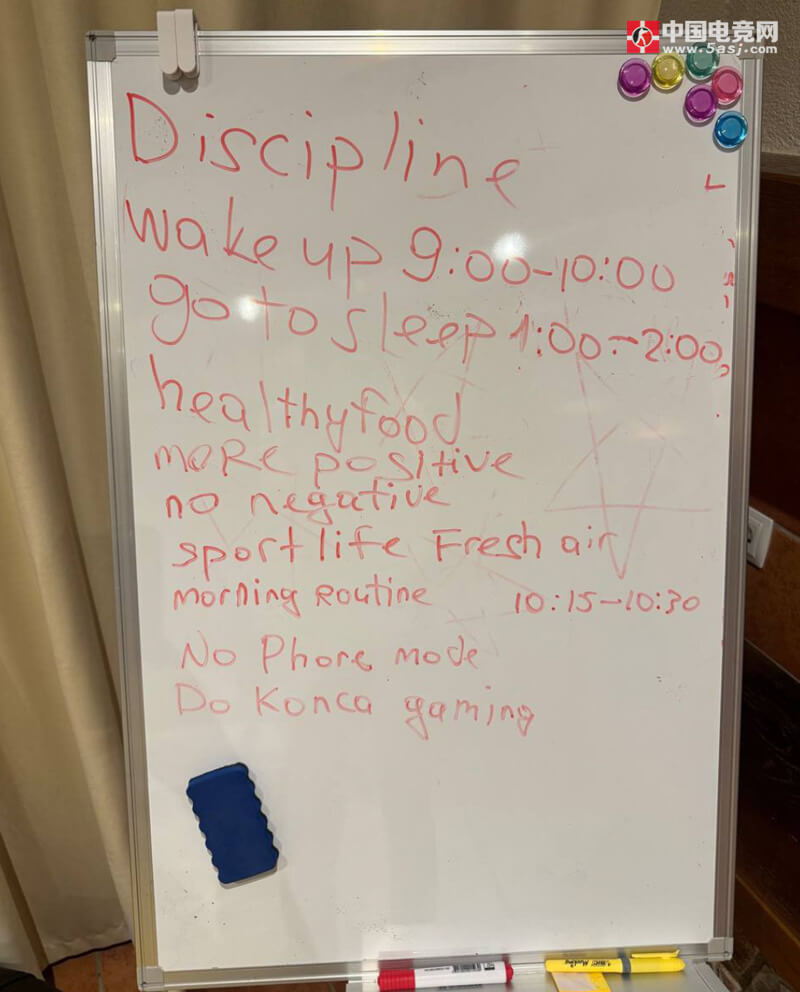 中国电竞网
www.5asj.com
Discipline
wake up 9:00-10:00
go to sleep 1:00-2:00
healthy food
moRe positive
no negative
sport life Fresh air
morning Routine 10:15-10:30
No Phone mode
Do Konca gaming